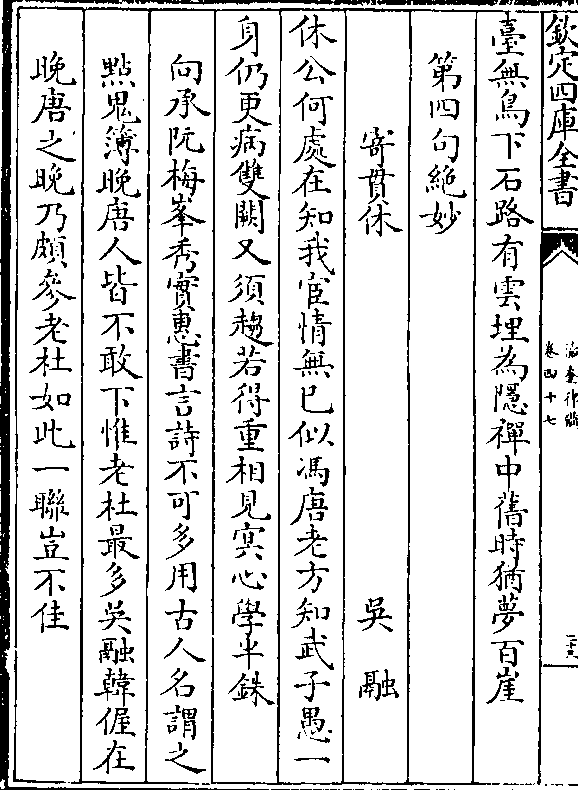 欽定四庫全書
瀛奎律髓
卷四十七
臺無鳥下石路有雲埋為隱禪中舊時猶夢百崖
第四句絶妙
寄貫休
吳融
休公何處在知我宦情無已似馮唐老方知武子愚一
身仍更病雙闕又須趨若得重相見冥心學半銖
向承阮梅峯秀實惠書言詩不可多用古人名謂之
點鬼簿晚唐人皆不敢下惟老杜最多吳融韓偓在
晚唐之晚乃頗參老杜如此一聯豈不佳